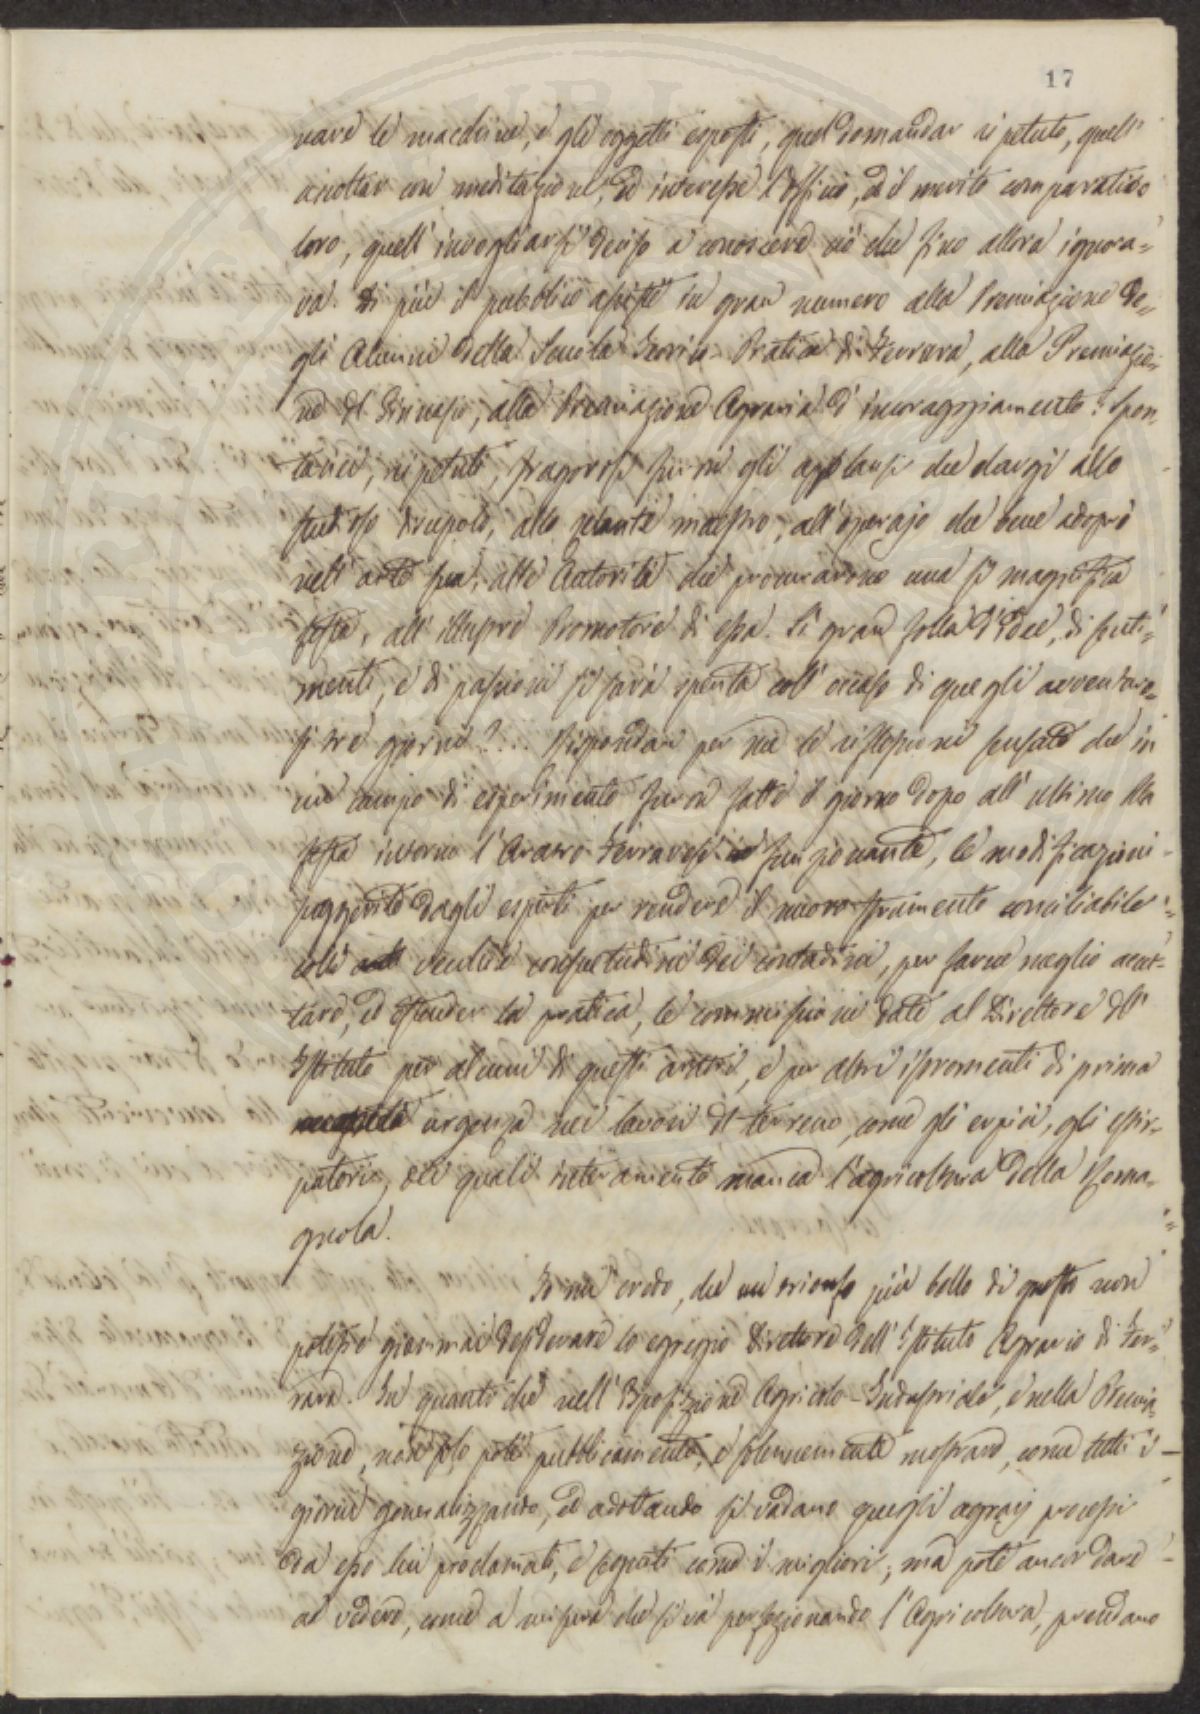 17
nare le macchine, e gli oggetti esposti, quel domandar ripetuto, quell'
ascoltar con meditazione, ed interesse l'officio, ed il merito comparativo
loro, quell'invogliarsi deciso a conoscere ciò che fino allora ignora=
va. Di più il pubblico assistè in gran numero alla Premiazione de=
gli Alunni della Scuola Teorico-Pratica di Ferrara, alla Premiazio=
ne del Ginnasio, alla Premiazione Agraria d'incoraggiamento: spon=
tanei, ripetuti, fragorosi furon gli applausi che largì allo
studioso discepolo, allo zelante maestro, all'operajo che bene adoprò
nell'arte sua, alle Autorità che procurarono una sì magnifica
festa, all'illustre Promotore di essa. Sì gran folla d'idee, di senti=
menti, e di passioni si sarà spenta coll'occaso di quegli avventuro=
si tre giorni?... Rispondan per me le riflessioni sensate che in
un campo di esperimento furon fatte il giorno dopo all'ultimo della
festa intorno l'Aratro Ferrarese funzionante, le modificazioni
suggerite dagli esperti per rendere il nuovo strumento conciliabile
colle vecchie consuetudini dei contadini, per farne meglio accet=
tare, ed estender la pratica, le commissioni date al Direttore dell'
Istituto per alcuni di questi aratri, e per altri istromenti di prima
urgenza nei lavori del terreno, come gli erpici, gli estir=
patori, dei quali interamente manca l'agricoltura della Roma=
gnola.
Io mi credo, che un trionfo più bello di questo non
potesse giammai desiderare lo egregio Direttore dell'Istituto Agrario di Fer=
rara. In quanto che nell'Esposizione Agricolo-Industriale, e nella Premia=
zione, non solo potè pubblicamente, e solennemente mostrare, come tutti i
giorni generalizzando, ed adottando si vadano quegli agrarj processi
da esso lui proclamati, e seguiti come i migliori; ma potè ancor dare
a vedere, come a misura che si và perfezionando l'Agricoltura, prendano